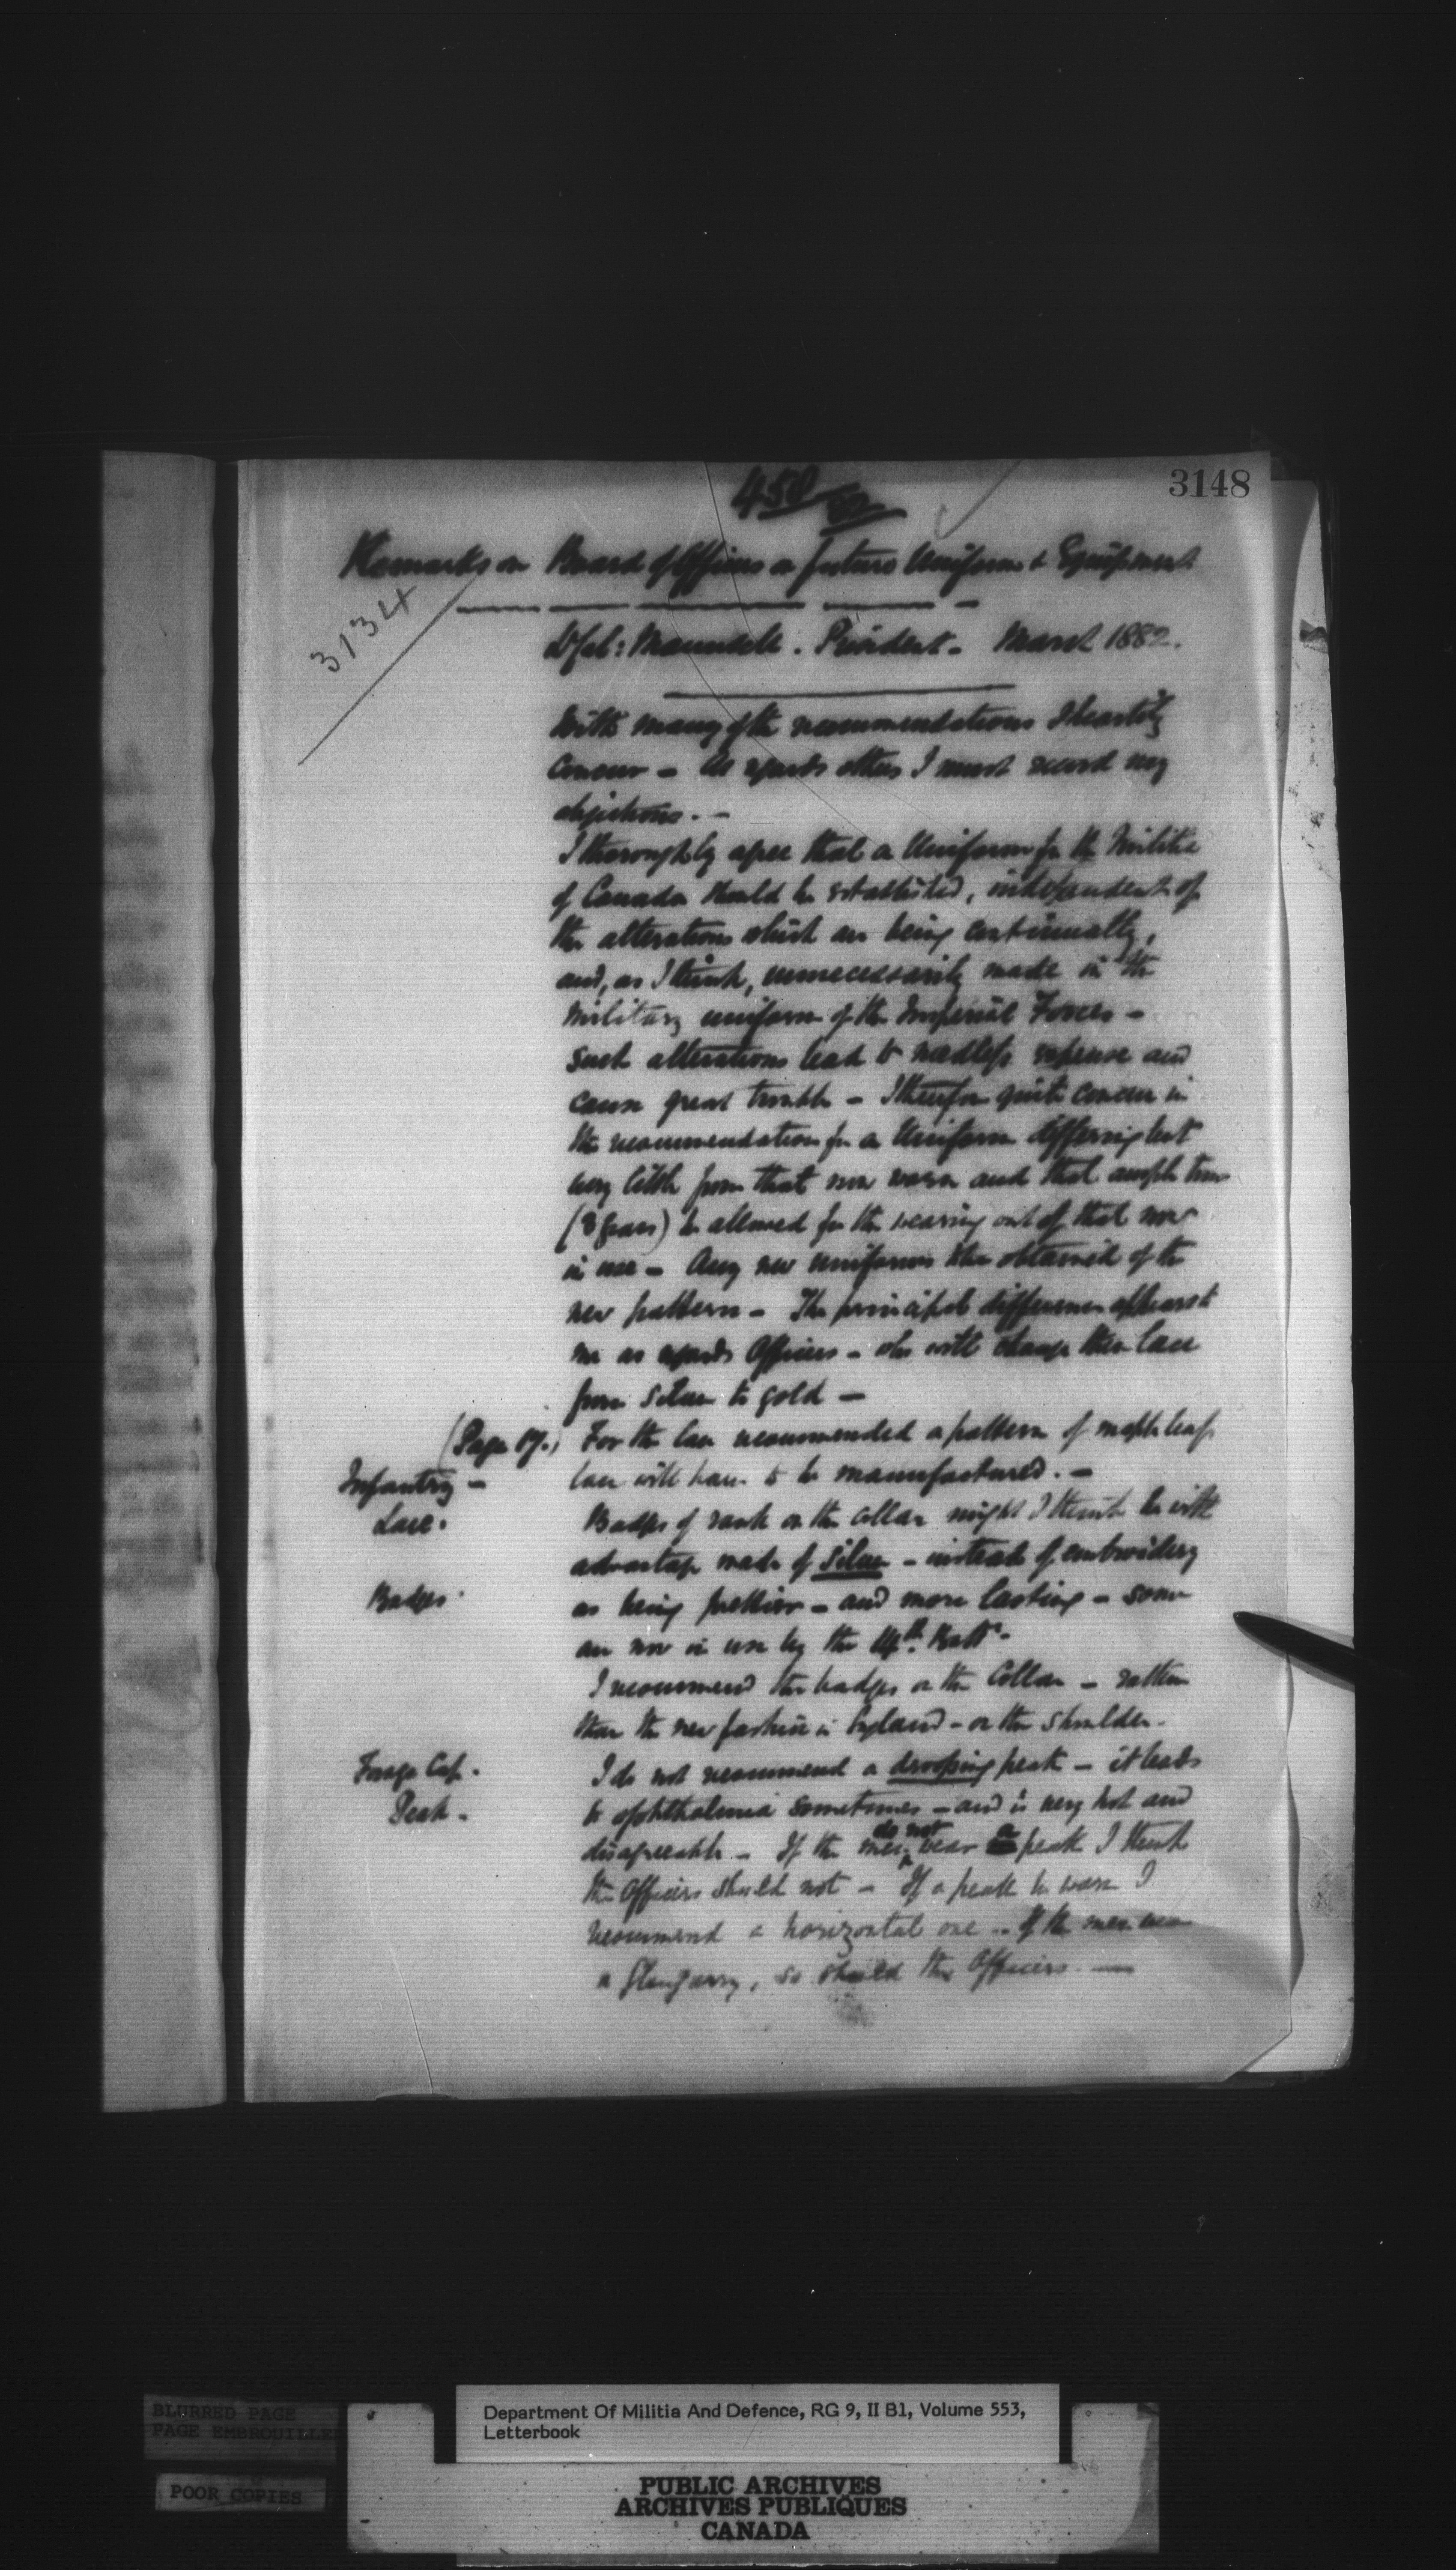 3148
450
Remarks on Board of Officers on future Uniform & Equipment
3134
Lt Col: Maunsell. President. March 1882.
With many of the recommendations I heartily
concur - As regards others I must record my
objections. -
I thoroughly agree that a Uniform for the Militia
of Canada should be established, independent of
the alterations which are being continually,
and, as I think, unnecessarily made in the
Military uniform of the Imperial Forces -
Such alterations lead to needless expense and
cause great trouble - I therefore quite concur in
the recommendation for a Uniform differing but
very little from that now worn and that ample time
(3 years) be allowed for the wearing out of that now
in use - Any new uniforms obtained of the
new pattern - The principal difference appears to
me as regards Officers - who will change their lace
from silver to gold -
(Page 17.) For the lace recommended a pattern of maple leaf
Infantry - lace will have to be manufactured. -
Lace. Badges of rank on the collar might I think be with
advantage made of silver - instead of embroidery
Badges as being prettier - and more lasting - some
are now in use by the Battn -
I recommend the badges on the Collar - rather
than the new fashion in England - on the shoulder.
Forage Cap. I do not recommend a drooping peak - it leads
Peak - to ophthalmia sometimes - and is very hot and
disagreeable - If the men do not wear a peak I think
the Officers should not - If a peak be worn I
recommend a horizontal one - If the men wear
a Glengarry, so should the Officers. -
BLURRED PAGE
PAGE EMBROUILLEE
POOR COPIES
Department Of Militia And Defence, RG 9, II B1, Volume 553,
Letterbook
PUBLIC ARCHIVES
ARCHIVES PUBLIQUES
CANADA